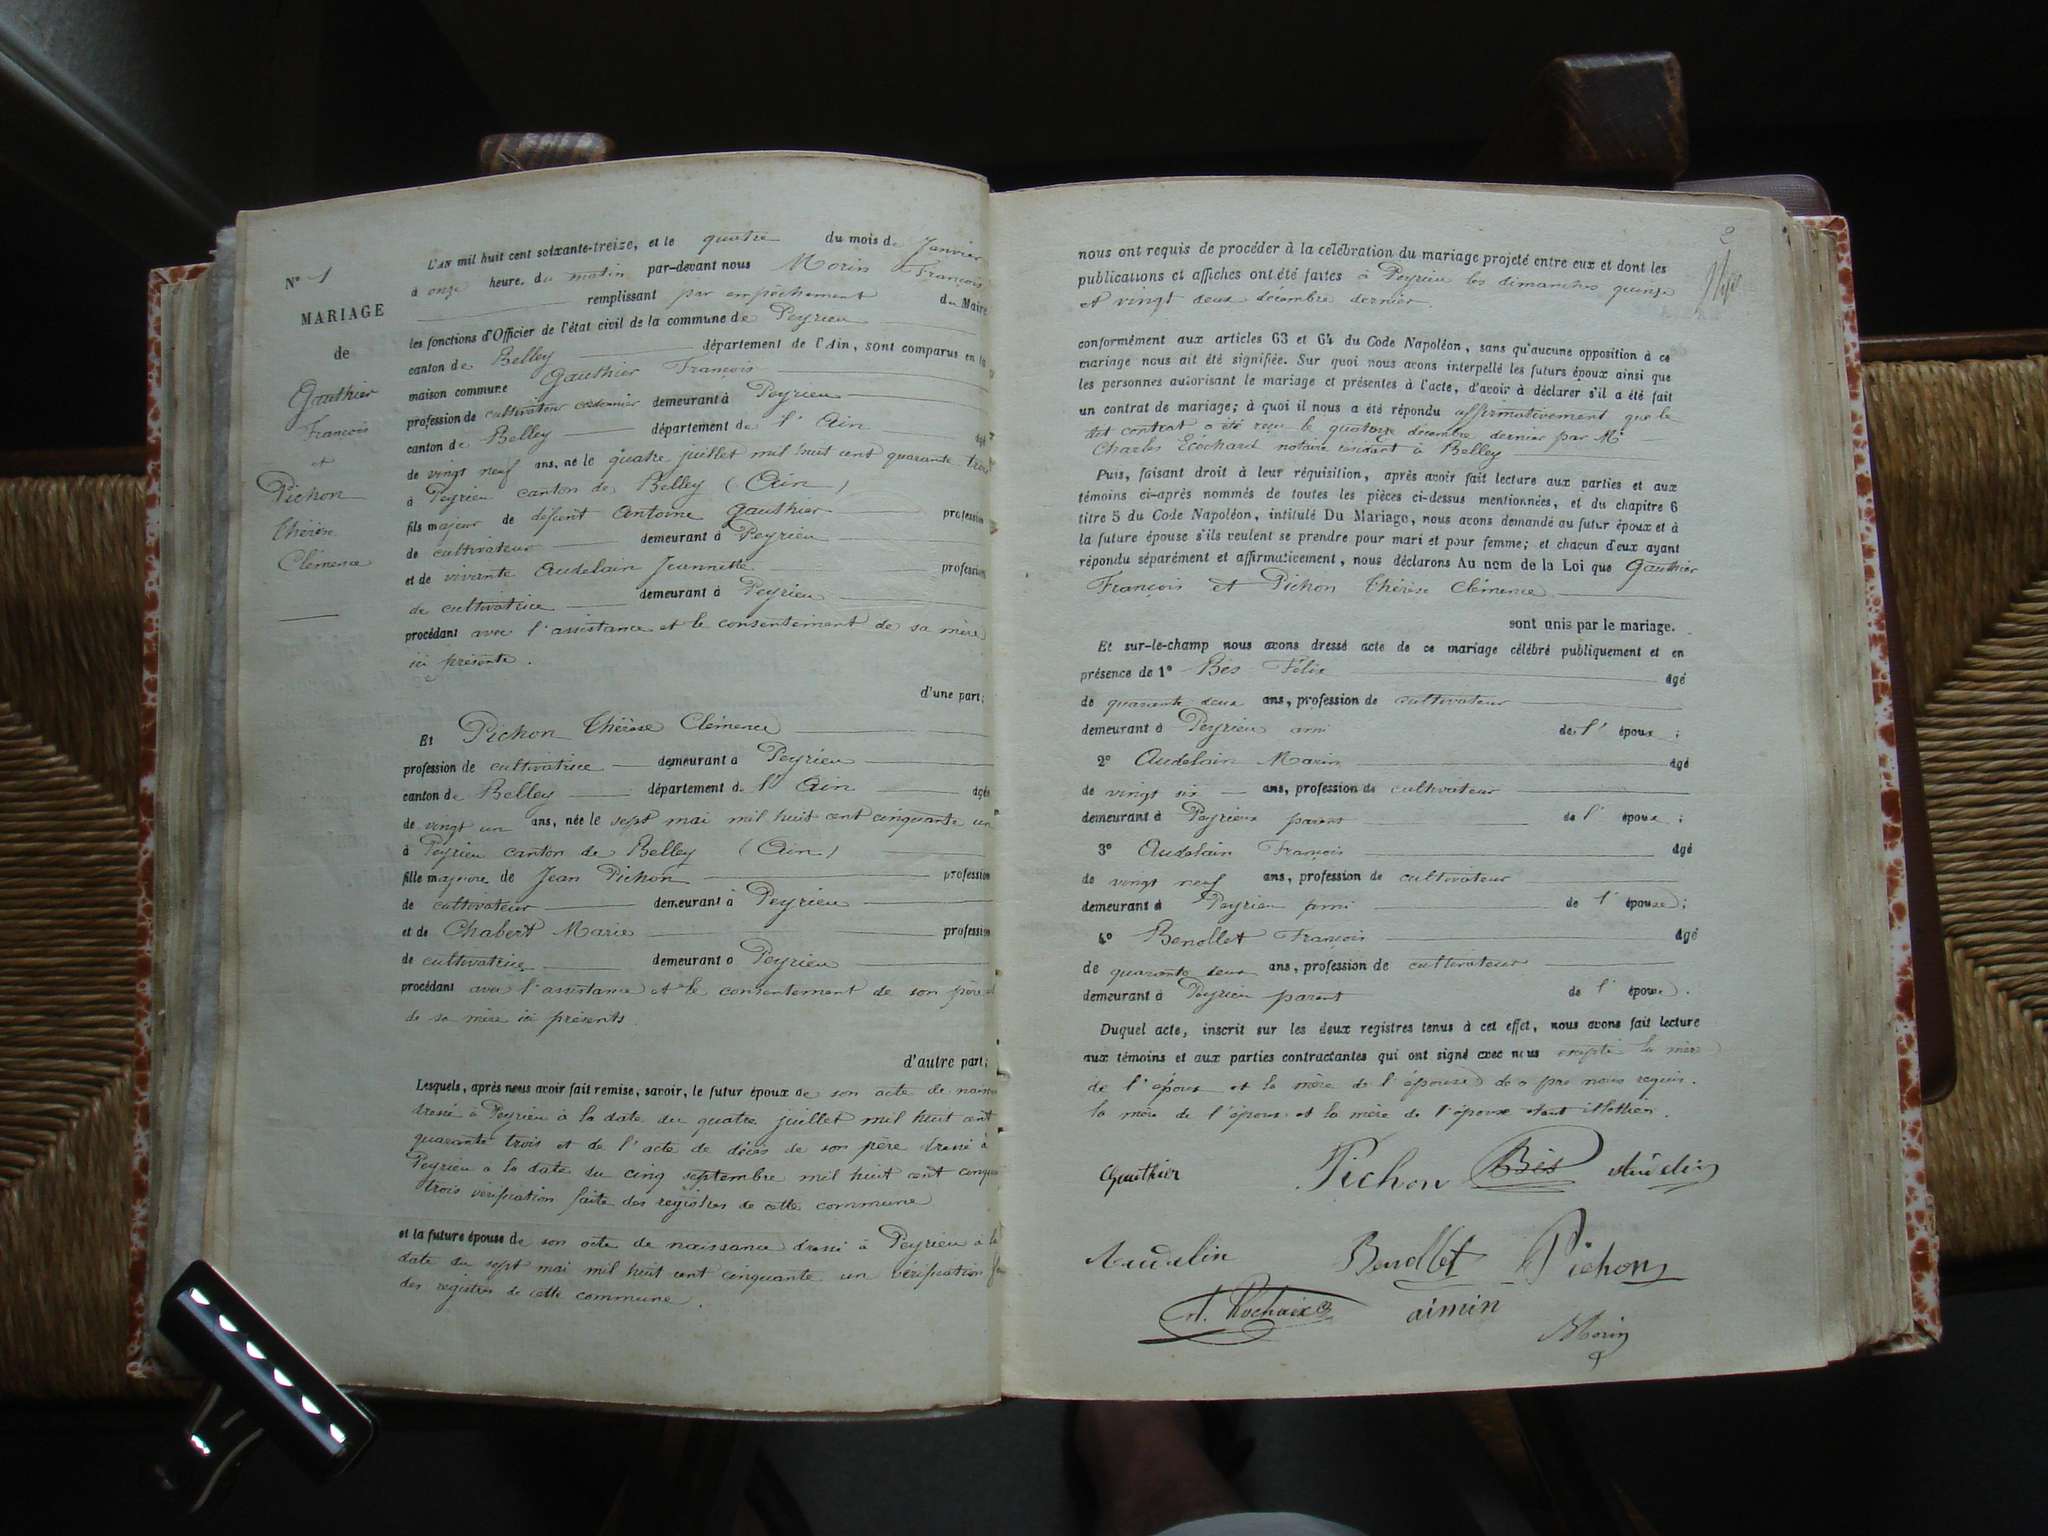 N° 1
MARIAGE
de
Gauthier
François
et
Pichon
Thérèse
Clémence
L'AN mil huit cent soixante-treize, et le quatre du mois de Janvier
à onze heure, du matin par-devant nous Morin François
remplissant par empêchement du Maire
les fonctions d'Officier de l'état civil de la commune de Peyrieu
canton de Belley département de l'Ain, sont comparus en la
maison commune Gauthier François
profession de cultivateur cordonnier demeurant à Peyrieu
canton de Belley département de l'Ain âgé
de vingt neuf ans, né le quatre juillet mil huit cent quarante trois
à Peyrieu canton de Belley (Ain)
fils majeur de défunt Antoine Gauthier profession
de cultivateur demeurant à Peyrieu
et de vivante Audelain Jeannette profession
de cultivatrice demeurant à Peyrieu
procédant avec l'assistance et le consentement de sa mère
ici présente.
d'une part;
Et Pichon Thérèse Clémence
profession de cultivatrice demeurant à Peyrieu
canton de Belley département de l'Ain âgée
de vingt un ans, née le sept mai mil huit cent cinquante un
à Peyrieu canton de Belley (Ain)
fille majeure de Jean Pichon profession
de cultivateur demeurant à Peyrieu
et de Chabert Marie profession
de cultivatrice demeurant à Peyrieu
procédant avec l'assistance et le consentement de son père et
de sa mère ici présents
d'autre part;
Lesquels, après nous avoir fait remise, savoir, le futur époux de son acte de naiss
dressé à Peyrieu à la date du quatre juillet mil huit cent
quarante trois et de l'acte de décès de son père dressé à
Peyrieu à la date du cinq septembre mil huit cent cinqua
trois vérification faite des registres de cette commune
et la future épouse de son acte de naissance dressé à Peyrieu à la
date du sept mai mil huit cent cinquante un vérification
des registres de cette commune.
2
nous ont requis de procéder à la célébration du mariage projeté entre eux et dont les
publications et affiches ont été faites à Peyrieu les dimanches quinze
et vingt deux décembre dernier
conformément aux articles 63 et 64 du Code Napoléon, sans qu'aucune opposition à ce
mariage nous ait été signifiée. Sur quoi nous avons interpellé les futurs époux ainsi que
les personnes autorisant le mariage et présentes à l'acte, d'avoir à déclarer s'il a été fait
un contrat de mariage; à quoi il nous a été répondu affirmativement que le
dit contrat a été reçu le quatorze décembre dernier par Me
Charles Ecochard notaire résidant à Belley
Puis, faisant droit à leur réquisition, après avoir fait lecture aux parties et aux
témoins ci-après nommés de toutes les pièces ci-dessus mentionnées, et du chapitre 6
titre 5 du Code Napoléon, intitulé Du Mariage, nous avons demandé au futur époux et à
la future épouse s'ils veulent se prendre pour mari et pour femme; et chacun d'eux ayant
répondu séparément et affirmativement, nous déclarons Au nom de la Loi que Gauthier
François et Pichon Thérèse Clémence
sont unis par le mariage.
Et sur-le-champ nous avons dressé acte de ce mariage célébré publiquement et en
présence de 1° Bès Félix âgé
de quarante deux ans, profession de cultivateur
demeurant à Peyrieu ami de l'époux;
2° Audelain Marin âgé
de vingt six ans, profession de cultivateur
demeurant à Peyrieu parent de l'époux;
3° Audelain François âgé
de vingt neuf ans, profession de cultivateur
demeurant à Peyrieu ami de l'épouse;
4° Benollet François âgé
de quarante deux ans, profession de cultivateur
demeurant à Peyrieu parent de l'épouse.
Duquel acte, inscrit sur les deux registres tenus à cet effet, nous avons fait lecture
aux témoins et aux parties contractantes qui ont signé avec nous excepté la mère
de l'époux et la mère de l'épouse de ce par nous requis.
la mère de l'époux et la mère de l'épouse étant illettrées.
Gauthier Pichon Bès Audelin
Audelin Benollet Pichon
A. Rochaix aimin
Morin